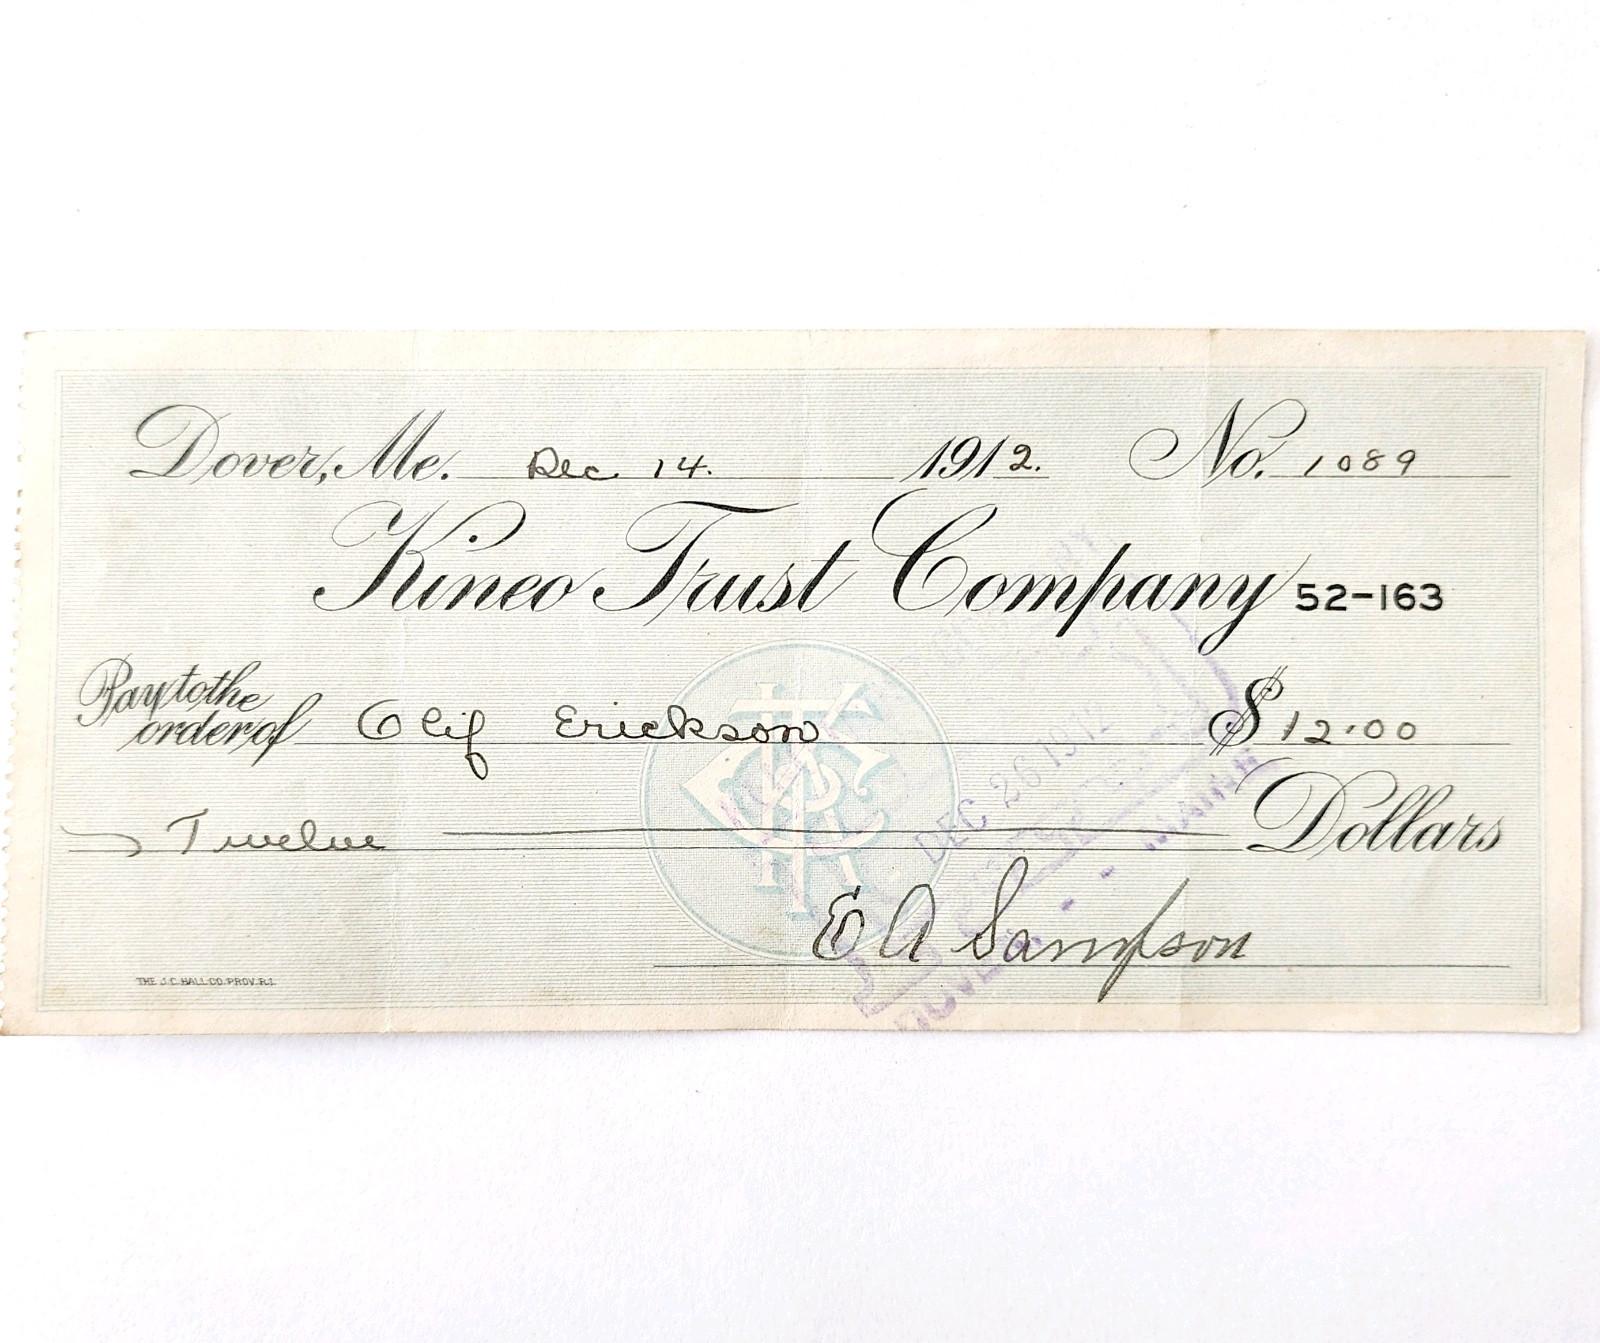 Dover, Me. Dec 14. 1912. No. 1089
Kineo Trust Company 52-163
Pay to the
order of Olif Erickson $12.00
Twelve Dollars
DEC 26 1912
E A Sampson
THE J.C. HALL CO. PROV. R.I.